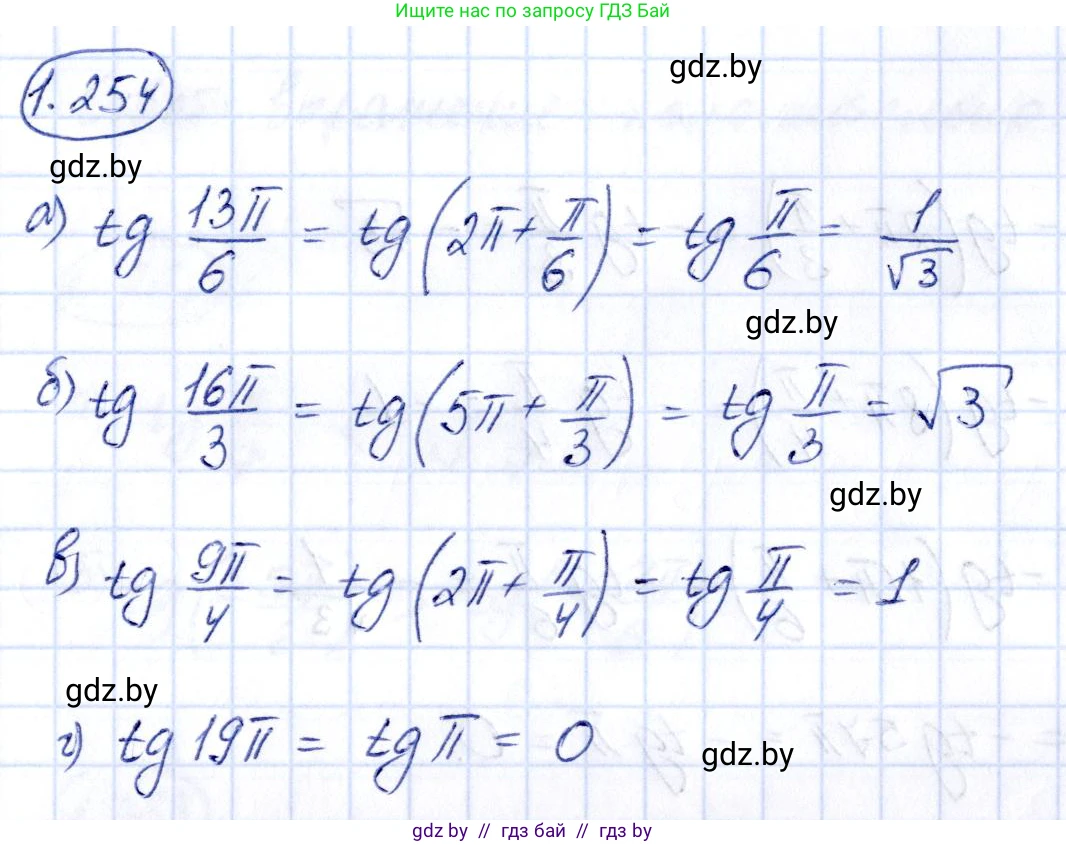 Ищите нас по запросу ГДЗ Бай
1.254
gdz.by
gdz.by
а) tg 13π/6 = tg(2π + π/6) = tg π/6 = 1/√3
gdz.by
б) tg 16π/3 = tg(5π + π/3) = tg π/3 = √3
gdz.by
в) tg 9π/4 = tg(2π + π/4) = tg π/4 = 1
gdz.by
г) tg 19π = tg π = 0
gdz.by
gdz by // гдз бай // гдз by